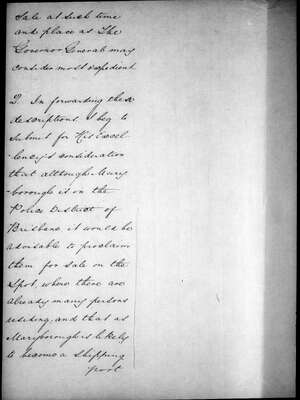 Sale at such time
and place as The
Governor General may
consider most expedient
2. In forwarding these
descriptions I beg to
submit for His Excel
lency's consideration
that although Mary
borough is in the
Police District of
Brisbane it would be
advisable to proclaim
them for sale on the
Spot, where there are
already many persons
residing, and that as
Maryborough is likely
to become a shipping
port